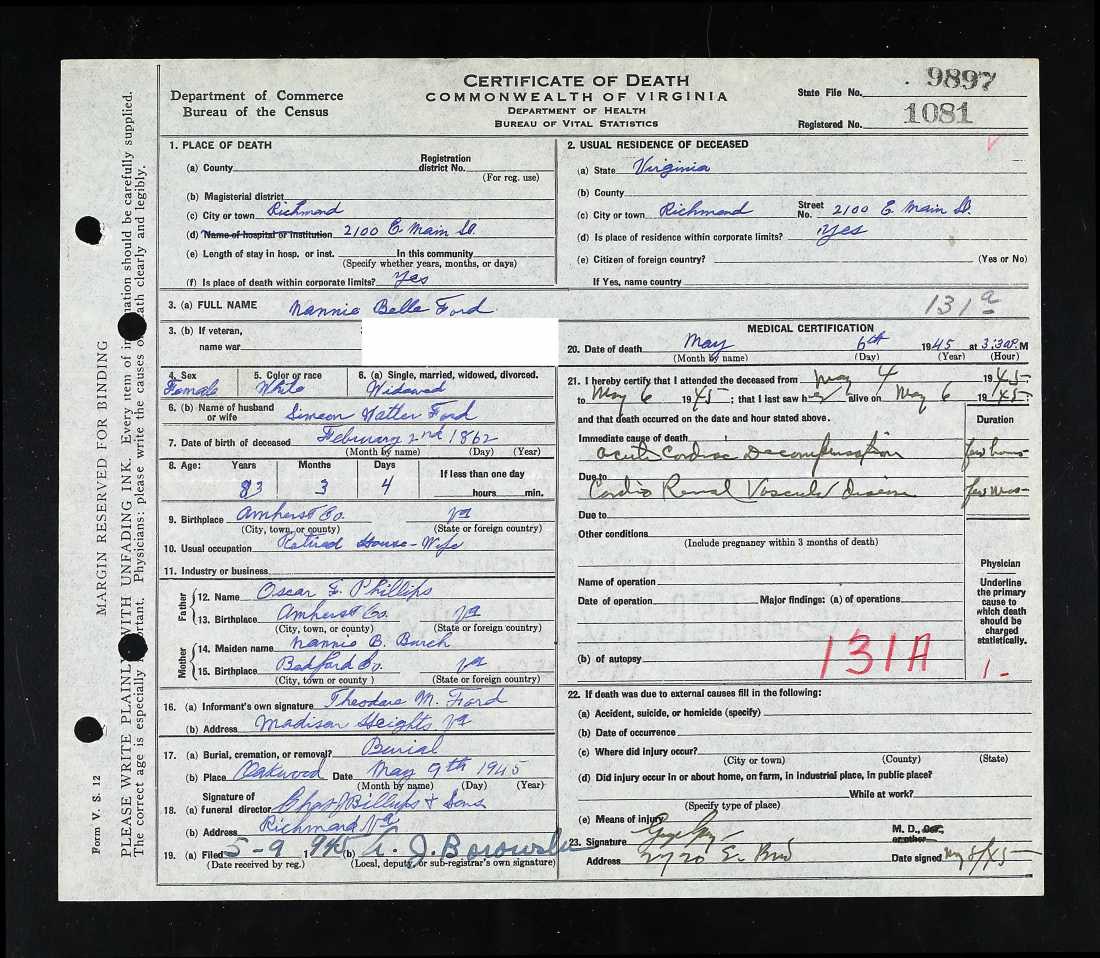 CERTIFICATE OF DEATH
COMMONWEALTH OF VIRGINIA
DEPARTMENT OF HEALTH
BUREAU OF VITAL STATISTICS
Department of Commerce
Bureau of the Census
State File No. 9897
Registered No. 1081
1. PLACE OF DEATH
(a) County
Registration district No.
(For reg. use)
(b) Magisterial district
(c) City or town Richmond
(d) Name of hospital or institution 2100 E Main St.
(e) Length of stay in hosp. or inst. In this community
(Specify whether years, months, or days)
(f) Is place of death within corporate limits? Yes
2. USUAL RESIDENCE OF DECEASED
(a) State Virginia
(b) County
(c) City or town Richmond Street No. 2100 E Main St.
(d) Is place of residence within corporate limits? Yes
(e) Citizen of foreign country? (Yes or No)
If Yes, name country
3. (a) FULL NAME Nannie Belle Ford
131a
3. (b) If veteran,
name war
4. Sex Female
5. Color or race White
6. (a) Single, married, widowed, divorced. Widowed
6. (b) Name of husband or wife Simeon Ford
7. Date of birth of deceased February 2nd 1862
(Month by name) (Day) (Year)
8. Age: Years Months Days If less than one day
83 3 4 hours min.
9. Birthplace Amherst Co. Va
(City, town, or county) (State or foreign country)
10. Usual occupation Retired House-Wife
11. Industry or business
Father
12. Name Oscar F. Phillips
13. Birthplace Amherst Co. Va
(City, town, or county) (State or foreign country)
Mother
14. Maiden name Nannie B. Burch
15. Birthplace Bedford Co. Va
(City, town, or county ) (State or foreign country)
16. (a) Informant's own signature Theodore M. Ford
(b) Address Madison Heights Va
17. (a) Burial, cremation, or removal? Burial
(b) Place Oakwood Date May 9th 1945
(Month by name) (Day) (Year)
18. Signature of
(a) funeral director Chas J Billups & Sons
(b) Address Richmond Va
19. (a) Filed 5-9 1945 (b) A. J. Borowski
(Date received by reg.) (Local, deputy, or sub-registrar's own signature)
MEDICAL CERTIFICATION
20. Date of death May 6th 1945 at 3:30 P. M
(Month by name) (Day) (Year) (Hour)
21. I hereby certify that I attended the deceased from May 4 1945
to May 6 1945; that I last saw her alive on May 6 1945
and that death occurred on the date and hour stated above.
Duration
Immediate cause of death
Acute Cardiac Decompensation few hours
Due to
Cardio Renal Vascular disease
Due to
Other conditions
(Include pregnancy within 3 months of death)
Name of operation
Date of operation Major findings: (a) of operations
(b) of autopsy
131A
Physician
Underline the primary cause to which death should be charged statistically.
1-
22. If death was due to external causes fill in the following:
(a) Accident, suicide, or homicide (specify)
(b) Date of occurrence
(c) Where did injury occur?
(City or town) (County) (State)
(d) Did injury occur in or about home, on farm, in industrial place, in public place?
While at work?
(Specify type of place)
(e) Means of injury
23. Signature M. D., Cor., or other
Address 2720 E. Date signed May 8/45
MARGIN RESERVED FOR BINDING
PLEASE WRITE PLAINLY WITH UNFADING INK. Every item of information should be carefully supplied.
The correct age is especially important. Physicians: please write the causes of death clearly and legibly.
Form V. S. 12